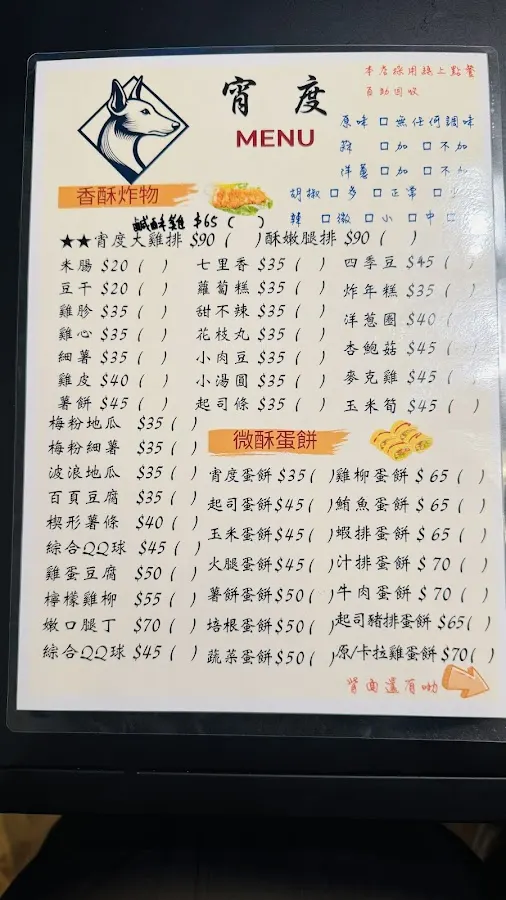 本店採用線上點餐
自助回收
宵 度
MENU
原味 口無任何調味
蒜 口加 口不加
洋蔥 口加 口不加
胡椒口多 口正常 口
辣 口微 口小 口中 口
香酥炸物
鹹酥雞 $65 ( )
★★宵度大雞排 $90 ( ) 酥嫩腿排 $90 ( )
米腸 $20 ( ) 七里香 $35 ( ) 四季豆 $45 ( )
豆干 $20 ( ) 蘿蔔糕 $35 ( ) 炸年糕 $35 ( )
雞胗 $35 ( ) 甜不辣 $35 ( ) 洋蔥圈 $40 ( )
雞心 $35 ( ) 花枝丸 $35 ( ) 杏鮑菇 $45 ( )
細薯 $35 ( ) 小肉豆 $35 ( ) 麥克雞 $45 ( )
雞皮 $40 ( ) 小湯圓 $35 ( ) 玉米筍 $45 ( )
薯餅 $45 ( ) 起司條 $35 ( )
梅粉地瓜 $35 ( )
梅粉細薯 $35 ( )
波浪地瓜 $35 ( )
百頁豆腐 $35 ( )
楔形薯條 $40 ( )
綜合QQ球 $45 ( )
雞蛋豆腐 $50 ( )
檸檬雞柳 $55 ( )
嫩口腿丁 $70 ( )
綜合QQ球 $45 ( )
微酥蛋餅
宵度蛋餅 $35 ( ) 雞柳蛋餅 $65 ( )
起司蛋餅 $45 ( ) 鮪魚蛋餅 $65 ( )
玉米蛋餅 $45 ( ) 蝦排蛋餅 $65 ( )
火腿蛋餅 $45 ( ) 汁排蛋餅 $70 ( )
薯餅蛋餅 $50 ( ) 牛肉蛋餅 $70 ( )
培根蛋餅 $50 ( ) 起司豬排蛋餅 $65 ( )
蔬菜蛋餅 $50 ( ) 原/卡拉雞蛋餅 $70 ( )
背面還有呦